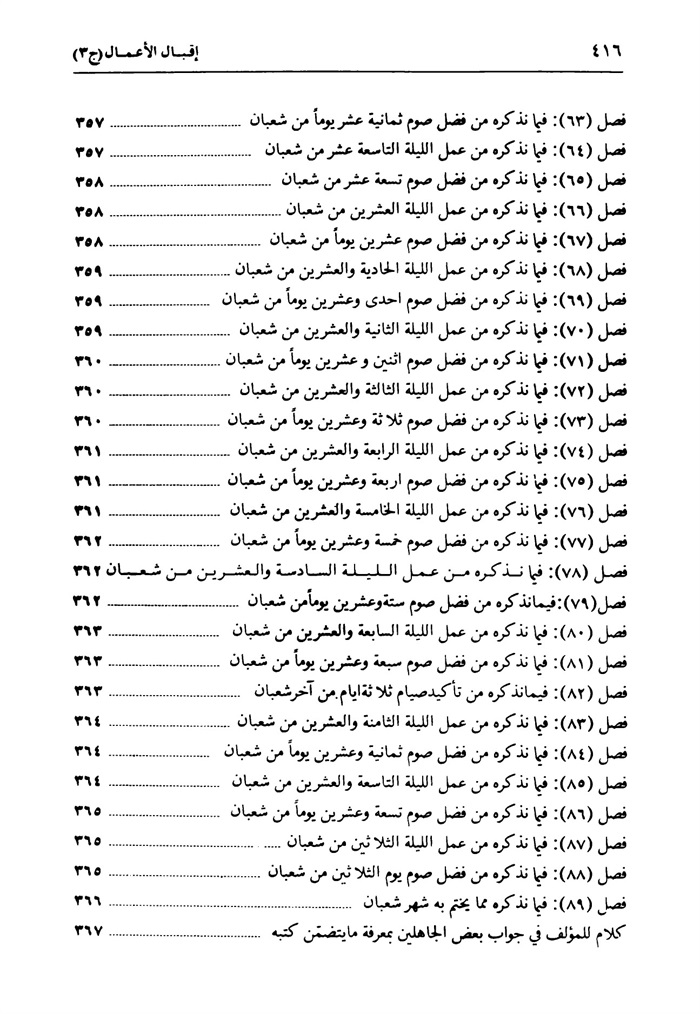 ٤١٦ إقبال الأعمال (ج٣)
فصل (٦٣): فيما نذكره من فضل صوم ثمانية عشر يوماً من شعبان ٣٥٧
فصل (٦٤): فيما نذكره من عمل الليلة التاسعة عشر من شعبان ٣٥٧
فصل (٦٥): فيما نذكره من فضل صوم تسعة عشر من شعبان ٣٥٨
فصل (٦٦): فيما نذكره من عمل الليلة العشرين من شعبان ٣٥٨
فصل (٦٧): فيما نذكره من فضل صوم عشرين يوماً من شعبان ٣٥٨
فصل (٦٨): فيما نذكره من عمل الليلة الحادية والعشرين من شعبان ٣٥٩
فصل (٦٩): فيما نذكره من فضل صوم احدى وعشرين يوماً من شعبان ٣٥٩
فصل (٧٠): فيما نذكره من عمل الليلة الثانية والعشرين من شعبان ٣٥٩
فصل (٧١): فيما نذكره من فضل صوم اثنين و عشرين يوماً من شعبان ٣٦٠
فصل (٧٢): فيما نذكره من عمل الليلة الثالثة والعشرين من شعبان ٣٦٠
فصل (٧٣): فيما نذكره من فضل صوم ثلاثة وعشرين يوماً من شعبان ٣٦٠
فصل (٧٤): فيما نذكره من عمل الليلة الرابعة والعشرين من شعبان ٣٦١
فصل (٧٥): فيما نذكره من فضل صوم اربعة وعشرين يوماً من شعبان ٣٦١
فصل (٧٦): فيما نذكره من عمل الليلة الخامسة والعشرين من شعبان ٣٦١
فصل (٧٧): فيما نذكره من فضل صوم خمسة وعشرين يوماً من شعبان ٣٦٢
فصل (٧٨): فيما نذكره من عمل الليلة السادسة والعشرين من شعبان ٣٦٢
فصل (٧٩): فيمانذكره من فضل صوم ستة وعشرين يوماًمن شعبان ٣٦٢
فصل (٨٠): فيما نذكره من عمل الليلة السابعة والعشرين من شعبان ٣٦٣
فصل (٨١): فيما نذكره من فضل صوم سبعة وعشرين يوماً من شعبان ٣٦٣
فصل (٨٢): فيمانذكره من تأكيدصيام ثلاثةايام من آخرشعبان ٣٦٣
فصل (٨٣): فيما نذكره من عمل الليلة الثامنة والعشرين من شعبان ٣٦٤
فصل (٨٤): فيما نذكره من فضل صوم ثمانية وعشرين يوماً من شعبان ٣٦٤
فصل (٨٥): فيما نذكره من عمل الليلة التاسعة والعشرين من شعبان ٣٦٤
فصل (٨٦): فيما نذكره من فضل صوم تسعة وعشرين يوماً من شعبان ٣٦٥
فصل (٨٧): فيما نذكره من عمل الليلة الثلاثين من شعبان ٣٦٥
فصل (٨٨): فيما نذكره من فضل صوم يوم الثلاثين من شعبان ٣٦٥
فصل (٨٩): فيما نذكره مما يختم به شهر شعبان ٣٦٦
كلام للمؤلف في جواب بعض الجاهلين بمعرفة مايتضمّن كتبه ٣٦٧